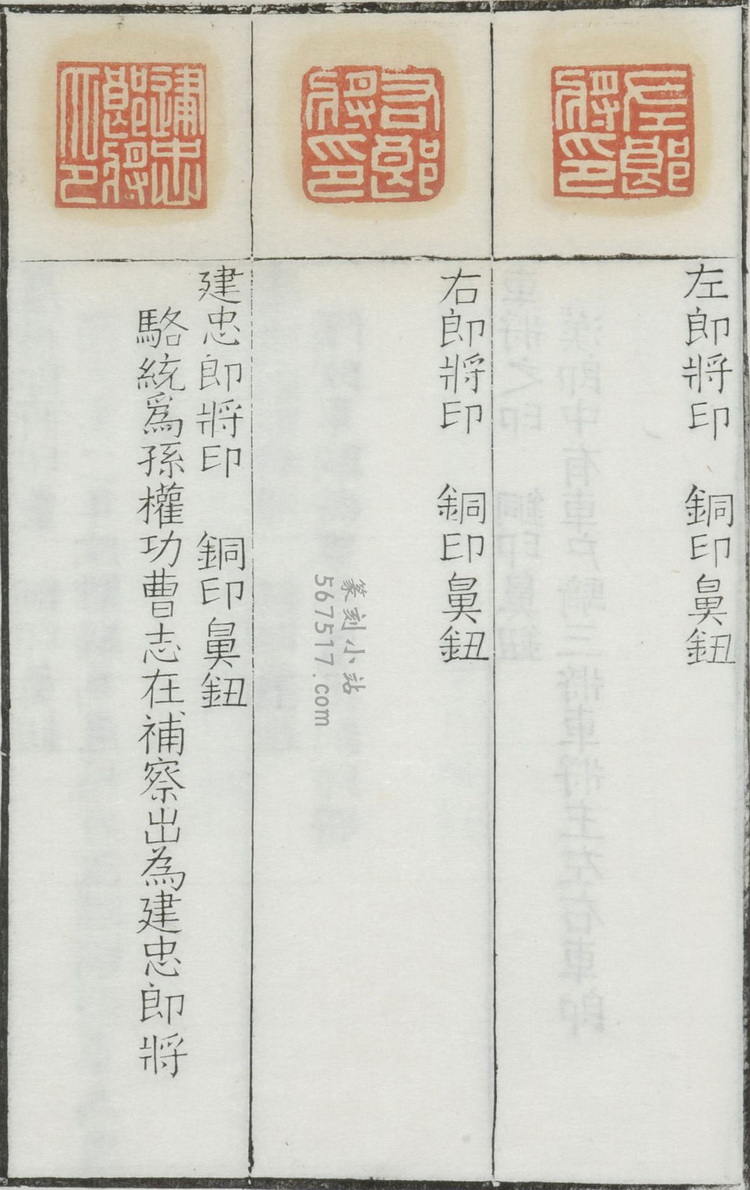 左郎將印
左郎將印 銅印鼻鈕
右郎將印
右郎將印 銅印鼻鈕
建忠郎將印
建忠郎將印 銅印鼻鈕
駱統爲孫權功曹志在補察出為建忠郎將
篆刻小站
567517.com